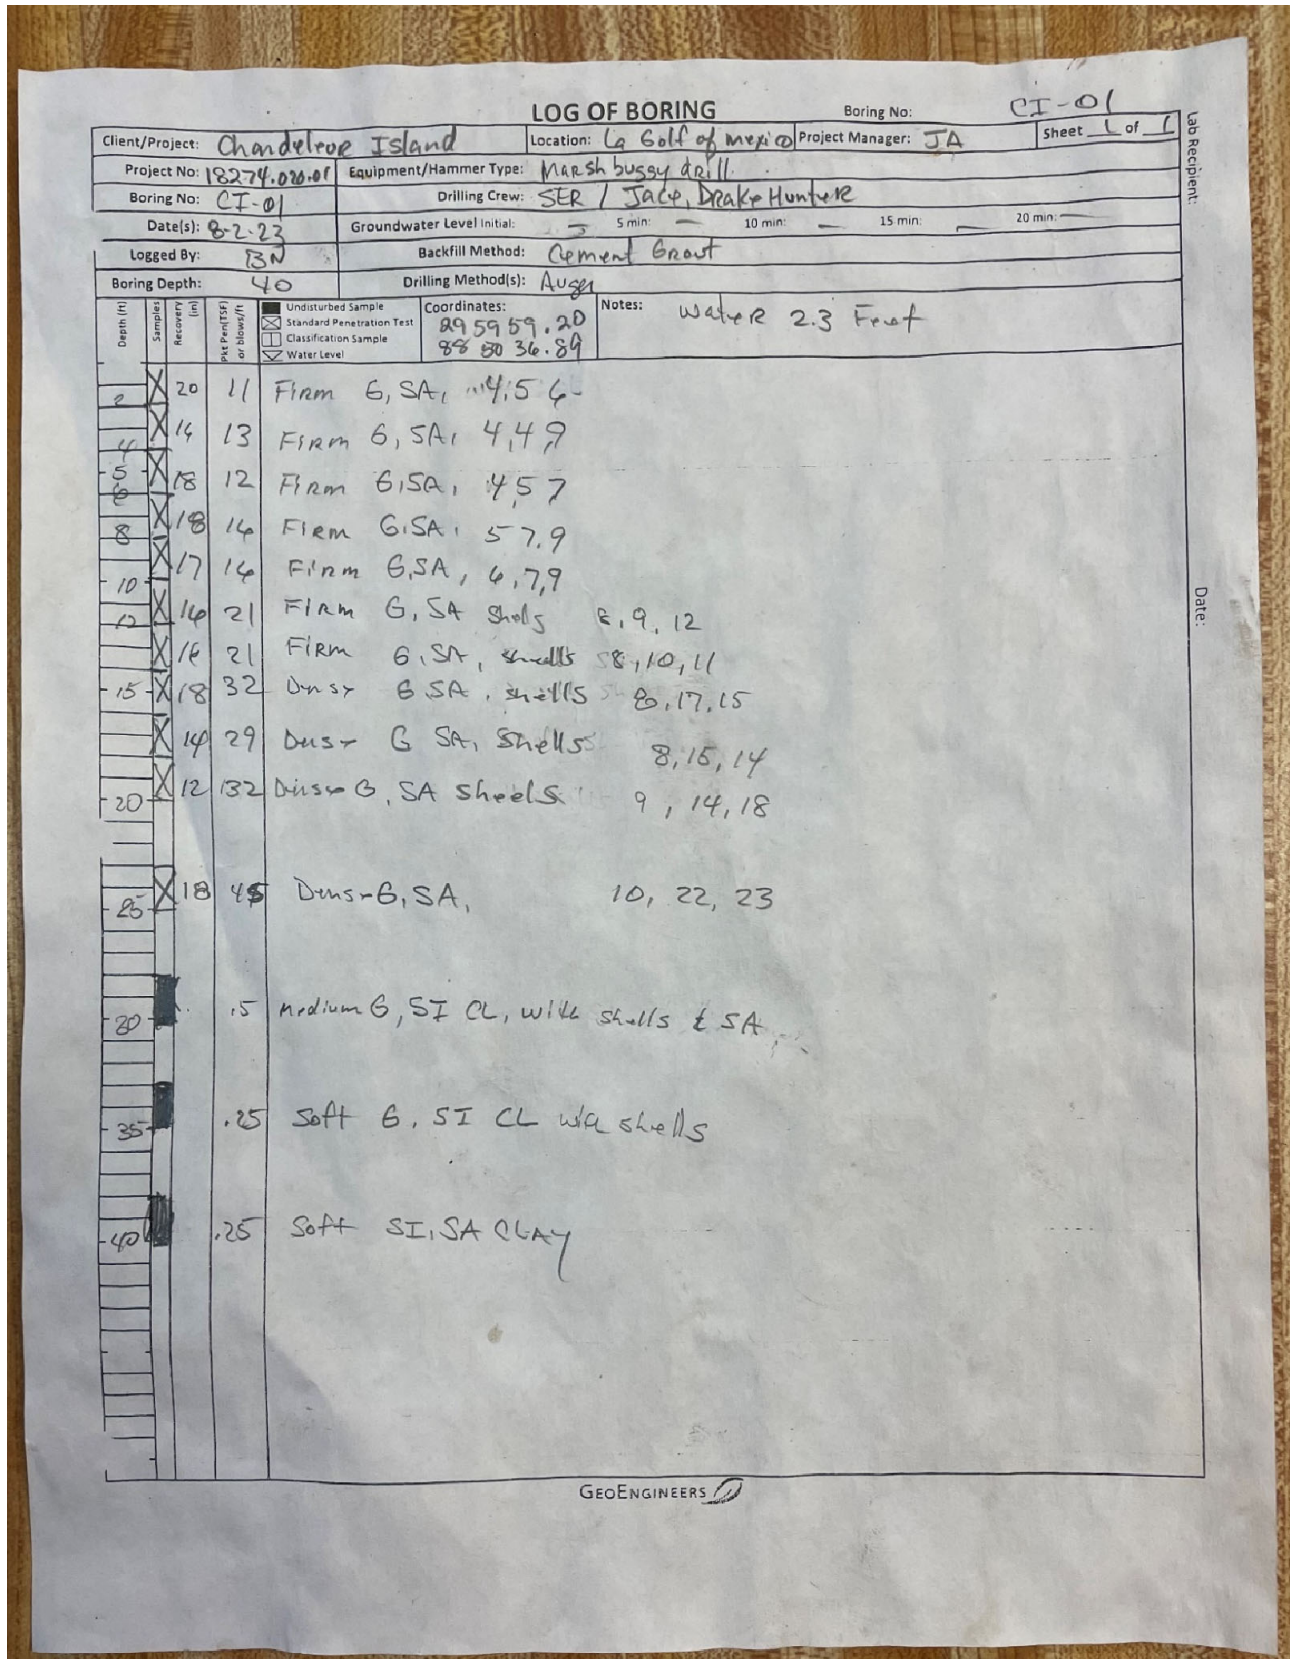 LOG OF BORING Boring No: CI-01
Client/Project: Chandeleue Island Location: La Golf of mexico Project Manager: JA Sheet 1 of 1
Project No: 18274.020.01 Equipment/Hammer Type: Marsh buggy drill
Boring No: CI-01 Drilling Crew: SER / Jace, Drake Hunter
Date(s): 8-2-23 Groundwater Level Initial: — 5 min: — 10 min: — 15 min: — 20 min: —
Logged By: BN Backfill Method: Cement Grout
Boring Depth: 40 Drilling Method(s): Auger
Depth (ft) Samples Recovery (in) Pkt Pen(TSF) or blows/ft
Undisturbed Sample
Standard Penetration Test
Classification Sample
Water Level
Coordinates:
29 59 59.20
88 50 36.89
Notes: Water 2.3 Feet
2 20 11 Firm G, SA, 4,5 6
4 14 13 Firm G, SA, 4,4 9
5
6 18 12 Firm G,SA, 4 5 7
8 18 16 Firm G,SA, 5 7,9
10 17 16 Firm G,SA, 6,7,9
12 16 21 Firm G, SA 8, 9, 12
16 21 Firm G, SA, shells 8,10,11
15 18 32 G SA, shells 17,15
14 29 G SA, Shells 8,15,14
20 12 32 G, SA Sheels 9, 14,18
25 18 45 G, SA, 10, 22, 23
30 .5 medium G, SI CL, with shells & SA
35 .25 Soft G, SI CL shells
40 .25 Soft SI,SA CLAY
GEOENGINEERS
Lab Recipient:
Date: